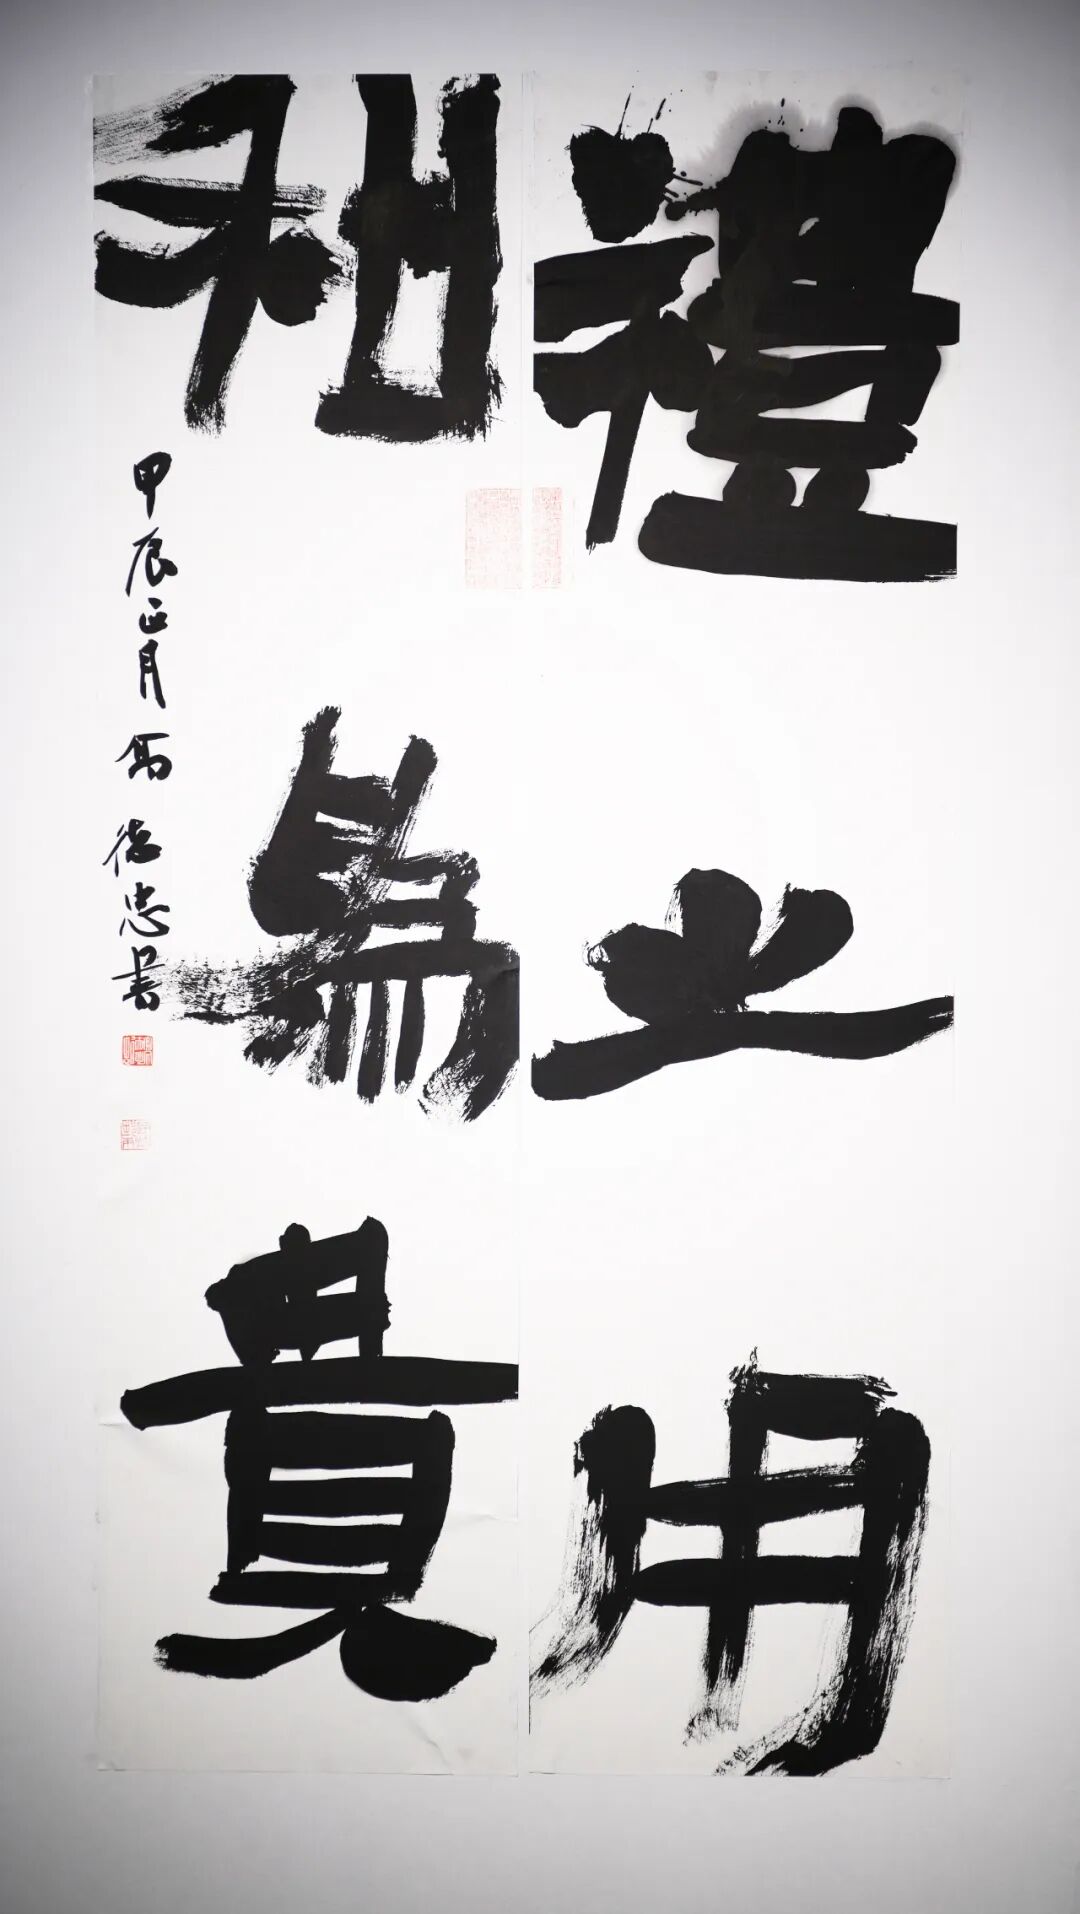 禮之用
和為貴
甲辰正月 馮德忠書